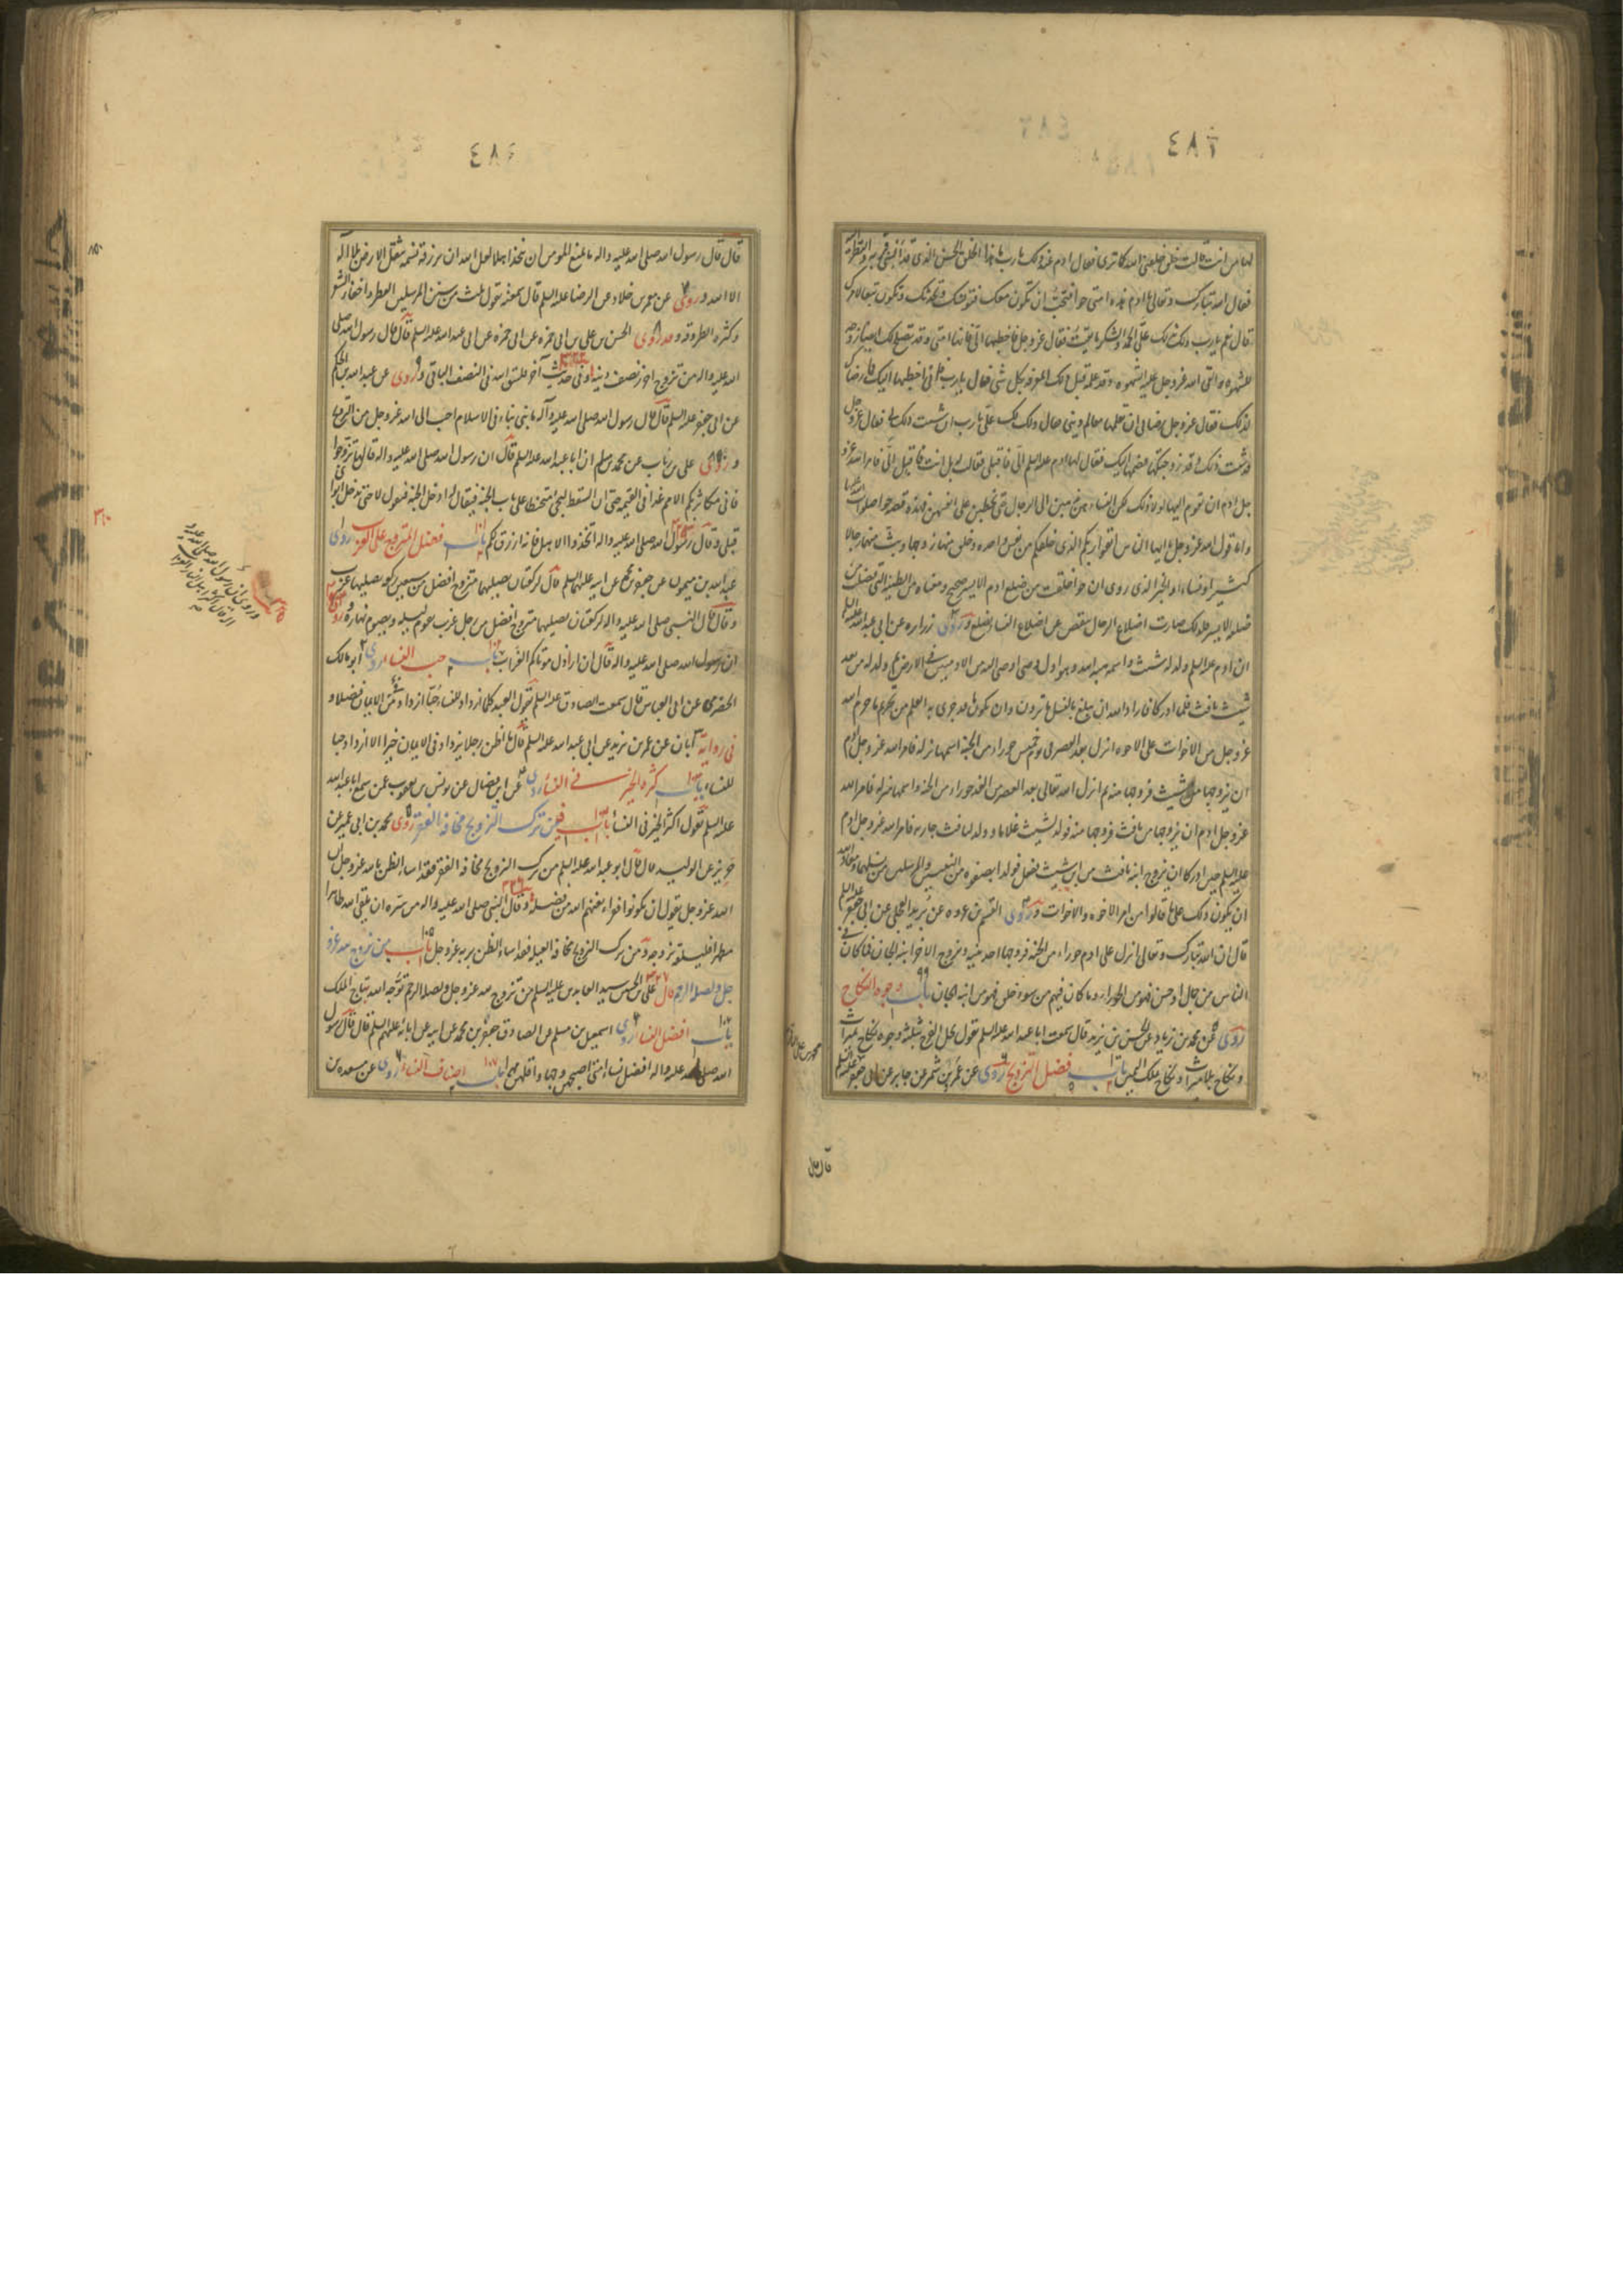 ٤٨٣
لها من انت قالت خلق خلقنى الله كما ترى فقال ادم عند ذلك يا رب ما هذا الخلق الحسن الذى قد آنسنى قربه والنظر اليه
فقال الله تبارك وتعالى يا ادم هذه امتى حوا افتحب ان تكون معك فتونسك وتحدثك وتكون تبعا لامرك
قال نعم يا رب ولك بذلك علىّ الحمد والشكر ما بقيت فقال عز وجل فاخطبها الىّ فانها امتى وقد تصلح لك ايضا زوجة
للشهوة والقى الله عز وجل عليه الشهوة وقد علمه قبل ذلك المعرفة بكل شى فقال يا رب فانى اخطبها اليك فما رضاك
لذلك فقال عز وجل رضائى ان تعلمها معالم دينى فقال ذلك لك علىّ يا رب ان شئت ذلك لى فقال عز وجل
وقد شئت ذلك وقد زوجتكها فضمها اليك فقال لها ادم عليه السلم الىّ فاقبلى فقالت له بل انت فاقبل الىّ فامر الله عز و
جل ادم ان يقوم اليها ولولا ذلك لكن النساء هن يذهبن الى الرجال حتى يخطبن على انفسهن فهذه قصة حوا صلوات الله عليها
واما قول الله عز وجل يا ايها الناس اتقوا ربكم الذى خلقكم من نفس واحده وخلق منها زوجها وبث منهما رجالا
كثيرا ونساء والخبر الذى روى ان حوا خلقت من ضلع ادم الايسر صحيح ومعناه من الطينة التى فضلت من
ضلعه الايسر فلذلك صارت اضلاع الرجال انقص من اضلاع النساء بضلع وروى زراره عن ابى عبد الله عليه السلم
ان ادم عليه السلم ولد له شيث واسمه هبة الله وهو اول وصى اوصى اليه من الادميين فى الارض ثم ولد له من بعد
شيث يافث فلما ادركا فاراد الله ان يبلغ بالنسل ما ترون وان يكون ما قد جرى به القلم من تحريم ما حرم الله
عز وجل من الاخوات على الاخوه انزل بعد العصر فى يوم خميس حوراء من الجنة اسمها نزلة فامر الله عز وجل ادم
ان يزوجها من شيث فزوجها منه ثم انزل الله تعالى بعد العصر من الغد حوراء من الجنة واسمها منزلة فامر الله
عز وجل ادم ان يزوجها من يافث فزوجها منه فولد لشيث غلاما وولد ليافث جارية فامر الله عز وجل ادم
عليه السلم حين ادركا ان يزوج ابنة يافث من ابن شيث ففعل فولد الصفوة من النبيين والمرسلين من نسلهما ومعاذ الله
ان يكون ذلك على ما قالوا من امر الاخوة والاخوات وروى القسم بن عروه عن بُريد العجلى عن ابى جعفر عليه السلم
قال ان الله تبارك وتعالى انزل على ادم حوراء من الجنة فزوجها احد ابنيه وتزوج الاخر ابنة الجان فما كان فى
الناس من جمال او حسن فهو من الحوراء وما كان فيهم من سوء خلق فهو من ابنة الجان باب وجوه النكاح
روى عن محمد بن زياد عن الحسن بن زيد قال سمعت ابا عبد الله عليه السلم يقول يحل الفرج بثلثة وجوه نكاح بميراث
ونكاح بلا ميراث ونكاح بملك اليمين باب فضل التزويج روى عن عمرو بن شمر عن جابر عن ابى جعفر عليه السلم
قال قال
٤٨٤
قال قال رسول الله صلى الله عليه واله ما يمنع المومن ان يتخذ اهلا لعل الله ان يرزقه نسمة تثقل الارض بلا اله
الا الله وروى عن معمر بن خلاد عن الرضا عليه السلم قال سمعته يقول ثلث من سنن المرسلين العطر واحفاء الشعر
وكثرة الطروقة وقد روى الحسن بن على بن ابى حمزه عن ابى عبد الله عليه السلم قال قال رسول الله صلى
الله عليه واله من تزوج احرز نصف دينه وفى حديث آخر فليتق الله فى النصف الباقى وروى عن عبد الله بن الحكم
عن ابى جعفر عليه السلم قال قال رسول الله صلى الله عليه وآله ما بنى بناء فى الاسلام احب الى الله عز وجل من التزويج
وروى على بن رئاب عن محمد بن مسلم ان ابا عبد الله عليه السلم قال ان رسول الله صلى الله عليه واله قال تزوجوا
فانى مكاثر بكم الامم غدا فى القيمة حتى ان السقط ليجئ محبنطئا على باب الجنة فيقال له ادخل الجنة فيقول لا حتى يدخل ابواى
قبلى وقال رسول الله صلى الله عليه واله اتخذوا الاهل فانه ارزق لكم باب فضل المتزوج على العزب روى
عبد الله بن ميمون عن جعفر بن محمد عن ابيه عليهما السلم قال ركعتان يصليهما متزوج افضل من سبعين ركعة يصليها عزب
وقال قال النبى صلى الله عليه واله لركعتان يصليهما متزوج افضل من رجل عزب يقوم ليله ويصوم نهاره وروى
ان رسول الله صلى الله عليه واله قال ان اراذل موتاكم العزاب باب حب النساء روى ابو مالك
الحضرمى عن ابى العباس قال سمعت الصادق عليه السلم يقول العبد كلما ازداد للنساء حُبّا ازداد فى الايمان فضلا و
فى رواية ابان عن عمر بن يزيد عن ابى عبد الله عليه السلم قال ما اظن رجلا يزداد فى الايمان خيرا الا ازداد حبا
للنساء باب كثرة الخير فى النساء روى عن ابن فضال عن يونس بن يعقوب عمن سمع ابا عبد الله
عليه السلم يقول اكثر الخير فى النساء باب فيمن ترك التزويج مخافة الفقر روى محمد بن ابى عمير عن
حريز عن الوليد قال قال ابو عبد الله عليه السلم من ترك التزويج مخافة الفقر فقد اساء الظن بالله عز وجل ان
الله عز وجل يقول ان يكونوا فقراء يغنهم الله من فضله وقال النبى صلى الله عليه واله من سره ان يلقى الله طاهرا
مطهرا فليلقه بزوجه ومن ترك التزويج مخافة العيلة فقد اساء الظن بربه عز وجل باب من تزوج لله عز و
جل ولصلة الرحم قال على بن الحسين سيد العابدين عليه السلم من تزوج لله عز وجل ولصلة الرحم توجه الله بتاج الملك
باب افضل النساء روى اسمعيل بن مسلم عن الصادق جعفر بن محمد عن ابيه عن ابائه عليهم السلم قال قال رسول
الله صلى الله عليه واله افضل نساء امتى اصبحهن وجها واقلهن مهرا باب اصناف النساء روى عن مسعدة بن
وروى ان رسول الله صلى الله عليه